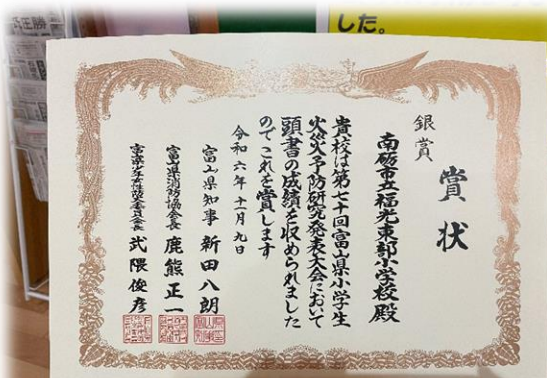 した。
賞状
銀賞
南砺市立福光東部小学校殿
貴校は第七十回富山県小学生
火災予防研究発表大会において
頭書の成績を収められました
のでこれを賞します
令和六年十一月九日
富山県知事 新田八朗
富山県消防協会長 鹿熊正一
武隈俊彦